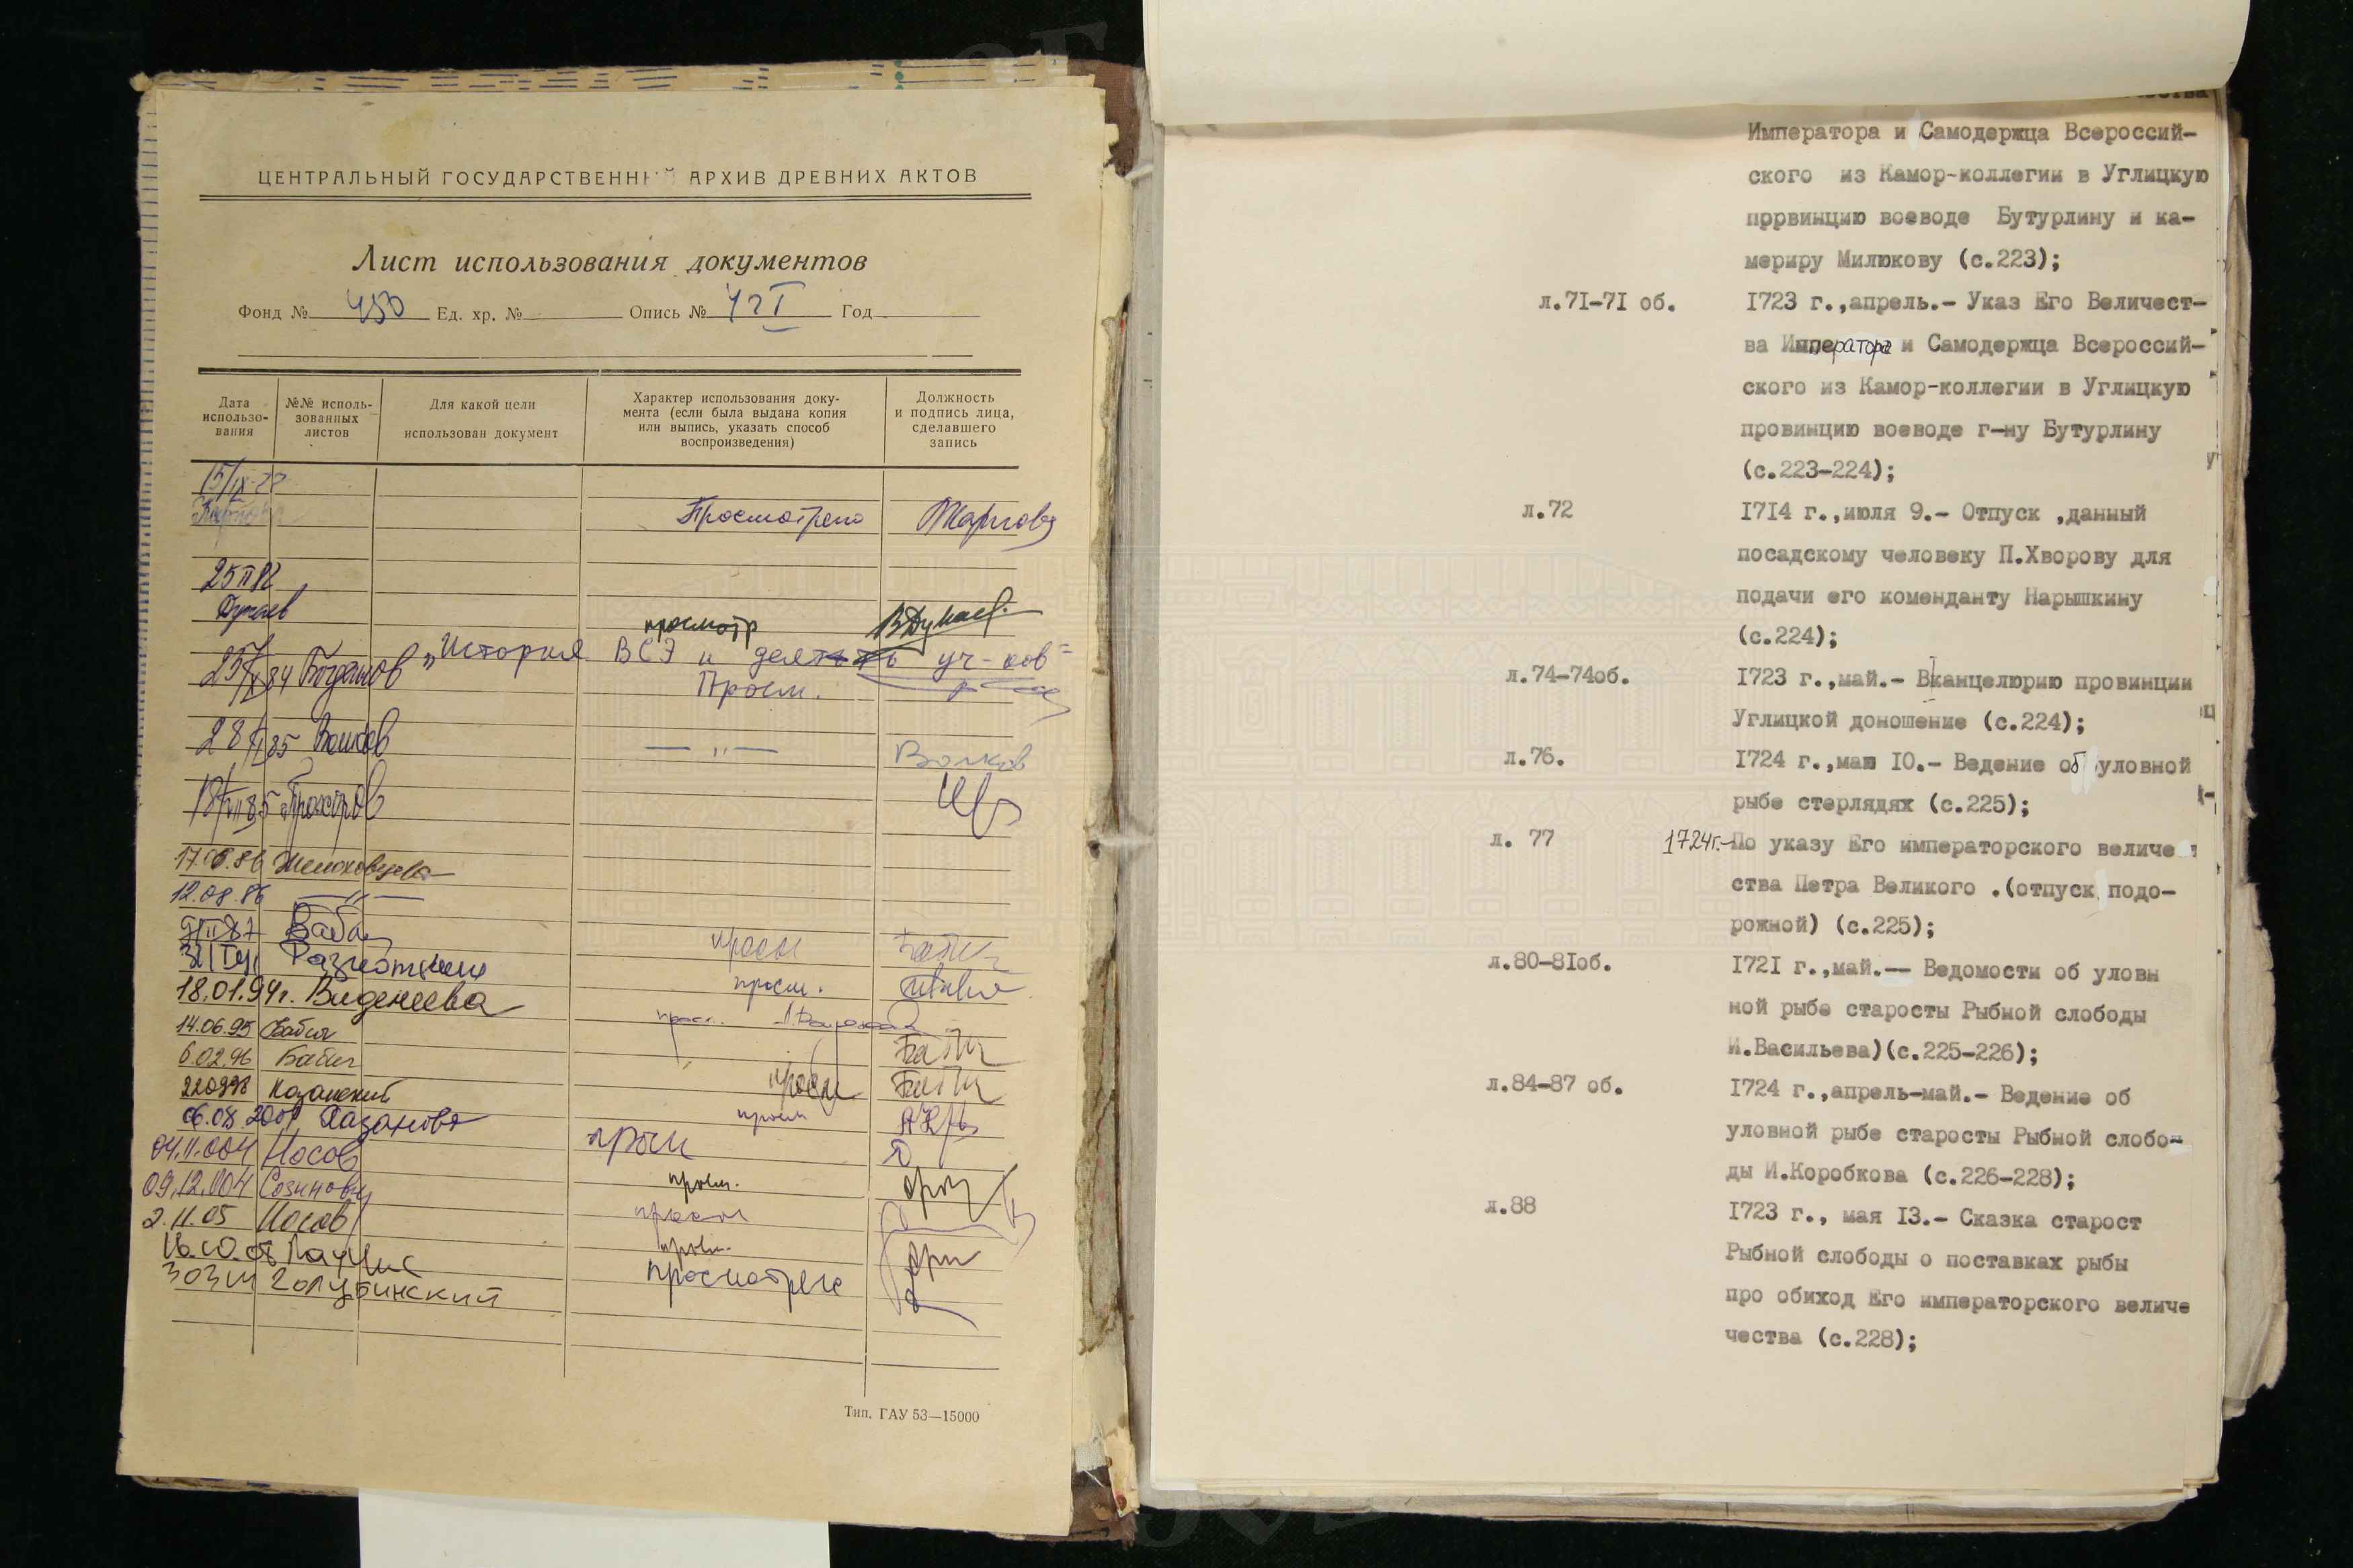 ЦЕНТРАЛЬНЫЙ ГОСУДАРСТВЕННЫЙ АРХИВ ДРЕВНИХ АКТОВ
Лист использования документов
Фонд № 450 Ед. хр. № Опись № Год
Дата использо-вания
№№ исполь-зованных листов
Для какой цели использован документ
Характер использования доку-мента (если была выдана копия или выпись, указать способ воспроизведения)
Должность и подпись лица, сделавшего запись
Просмотрено
просмотр
"История ВСЭ и
25/X 84 Богданов
Просм.
Волков — " — Волков
Прохоров
12.08.86 — " —
просм
просм.
18.01.94г. Виденеева
14.06.95
6.02.96 Бабич
Казанский просм
06.08.2001 Казанова просм
04.11.004 Носов просм
09.12.004 просм.
2.11.05 Носов просм
просм.
Голубинский просмотрено
Тип. ГАУ 53—15000
Императора и Самодержца Всероссий-
ского из Камор-коллегии в Углицкую
пррвинцию воеводе Бутурлину и ка-
мериру Милюкову (с.223);
л.71-71 об. 1723 г.,апрель.- Указ Его Величест-
ва Императора и Самодержца Всероссий-
ского из Камор-коллегии в Углицкую
провинцию воеводе г-ну Бутурлину
(с.223-224);
л.72 1714 г.,июля 9.- Отпуск ,данный
посадскому человеку П.Хворову для
подачи его коменданту Нарышкину
(с.224);
л.74-74об. 1723 г.,май.- В канцелюрию провинции
Углицкой доношение (с.224);
л.76. 1724 г.,маю 10.- Ведение об уловной
рыбе стерлядях (с.225);
л. 77 1724г.-По указу Его императорского величе
ства Петра Великого .(отпуск подо-
рожной) (с.225);
л.80-81об. 1721 г.,май.-- Ведомости об уловн
ной рыбе старосты Рыбной слободы
И.Васильева)(с.225-226);
л.84-87 об. 1724 г.,апрель-май.- Ведение об
уловной рыбе старосты Рыбной слобо-
ды И.Коробкова (с.226-228);
л.88 1723 г., мая 13.- Сказка старост
Рыбной слободы о поставках рыбы
про обиход Его императорского величе
чества (с.228);